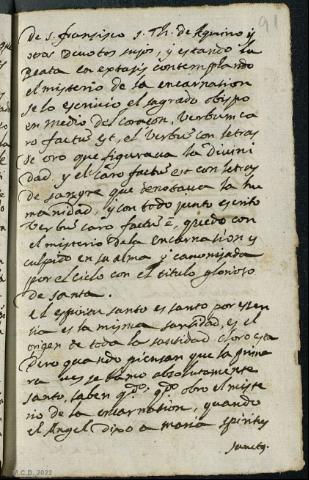 91
De s. fransisco s. Th. de Aquino y
otros devotos sujos, y estando la
Beata en extasis contemplando
el misterio de la encarnation
se lo escrivio el sagrado obispo
en medio del coraçon, verbum ca
ro factus est, el verbus con letras
de oro que figurava la Divini
dad, y el caro factus est con letras
de sangre que denotava la hu
manidad, y con todo junto escrito
verbus caro factus ẽ, quedo con
el misterio dela encarnation y
culpido en su alma y canonisada
por el cielo con el titulo glorioso
de santa.
el espiritu santo es santo por essen
tia es la misma santidad, es el
origen de toda la santidad claro esta
Pero quando piensan que la prima
ra ves se llamo absolutamente
santo, saben qdo. qdo obro el miste
rio de la encarnation, quando
el Angel dixo a maria spiritus
sanctus
A.C.D. 2022